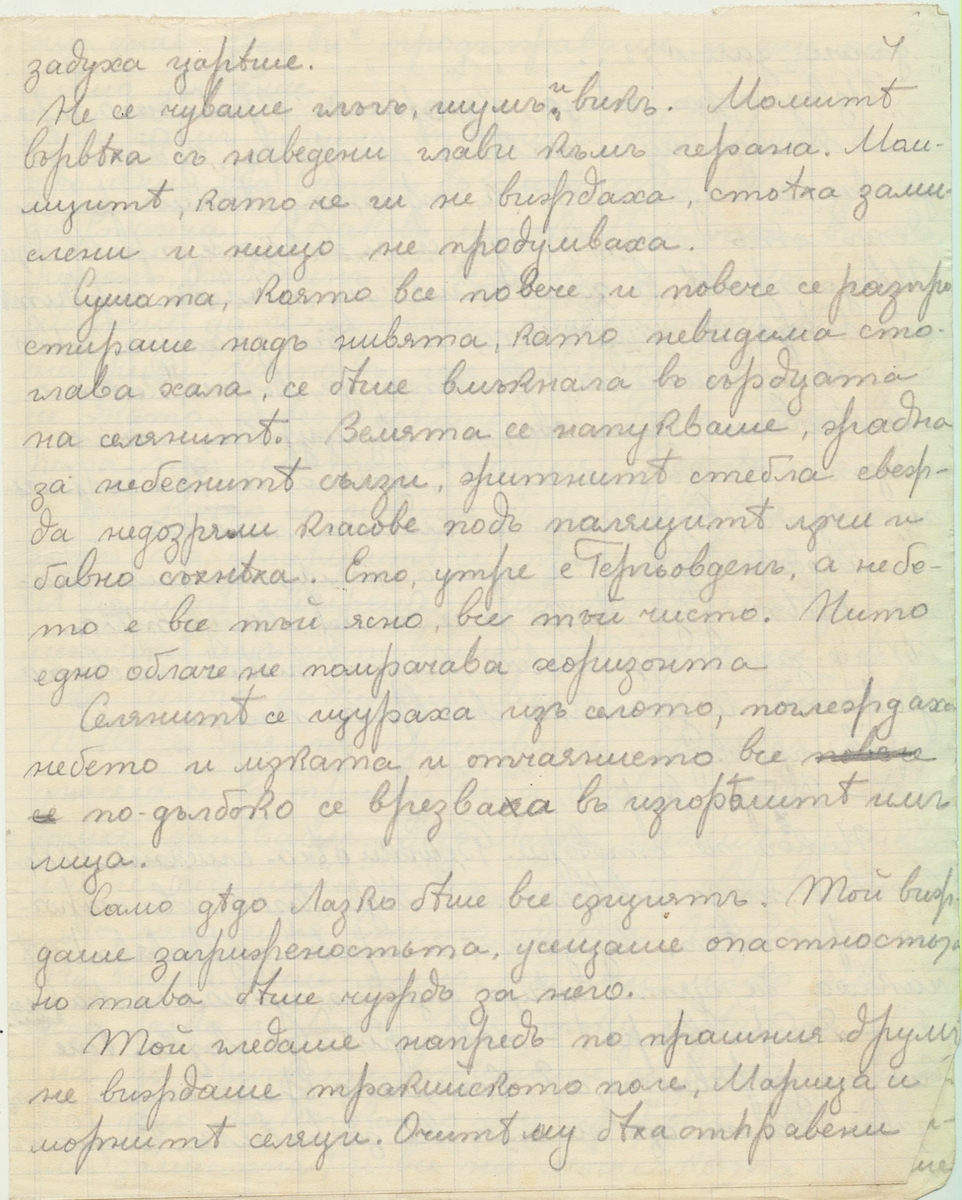 задуха царѣше.
Не се чуваше глъчъ, шумъ и викъ. Момитѣ
вървѣха съ наведени глави къмъ герана. Мом-
цитѣ, като че ги не виждаха, стоѣха зами-
слени и нищо не продумваха.
Сушата, която все повече и повече се разпро
стираше надъ нивята, като невидима сто-
глава хала, се бѣше вмъкнала въ сърдцата
на селянитѣ. Земята се напукваше, жадна
за небеснитѣ сълзи, житнитѣ стебла свеж-
да недозряли класове подъ палящитѣ лъчи и
бавно съхнѣха. Ето, утре е Гергьовденъ, а небе-
то е все тъй ясно, все тъй чисто. Нито
едно облаче не помрачава хоризонта
Селянитѣ се щураха изъ селото, поглеждаха
небето и мъката и отчаянието все повече
се по-дълбоко се врезваха въ изгорѣлитѣ имъ
лица.
Само дѣдо Лазко бѣше все сѫщиятъ. Той виж-
даше загрижеността, усещаше опастностьта
но това бѣше чуждъ за него.
Той гледаше напредъ по прашния друмъ
не виждаше тракийското поле, Марица и
морнитѣ селяци. Очитѣ му бѣха отправени